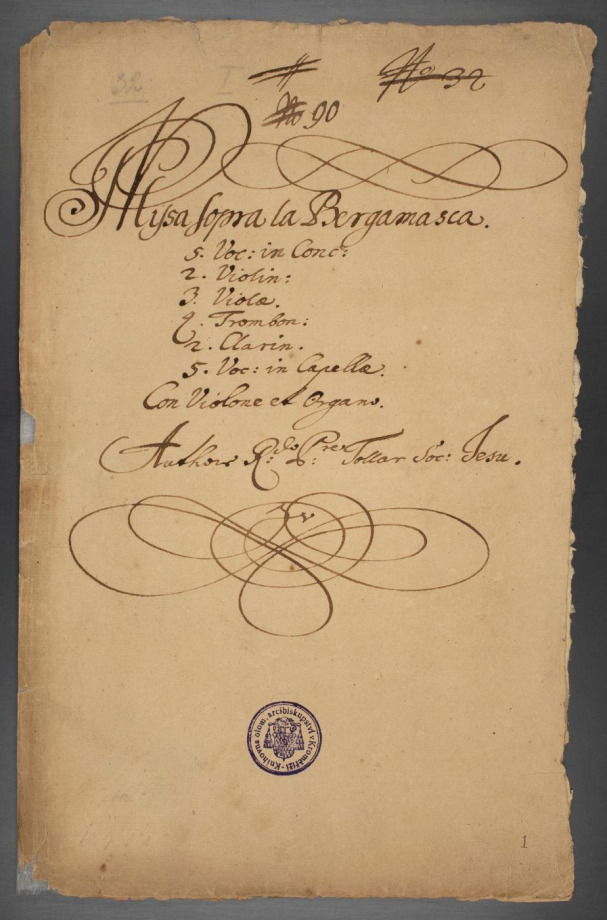 32 I No 32
No 90
Missa sopra la Bergamasca.
5. Voc: in Conc:
2. Violin:
3. Violæ.
4. Trombon:
2. Clarin.
5. Voc: in Capellæ.
Con Violone et Organo.
Authore R:do P:re Tollar Soc: Jesu.
Knihovna olom. arcibiskupství v Kroměříži
1